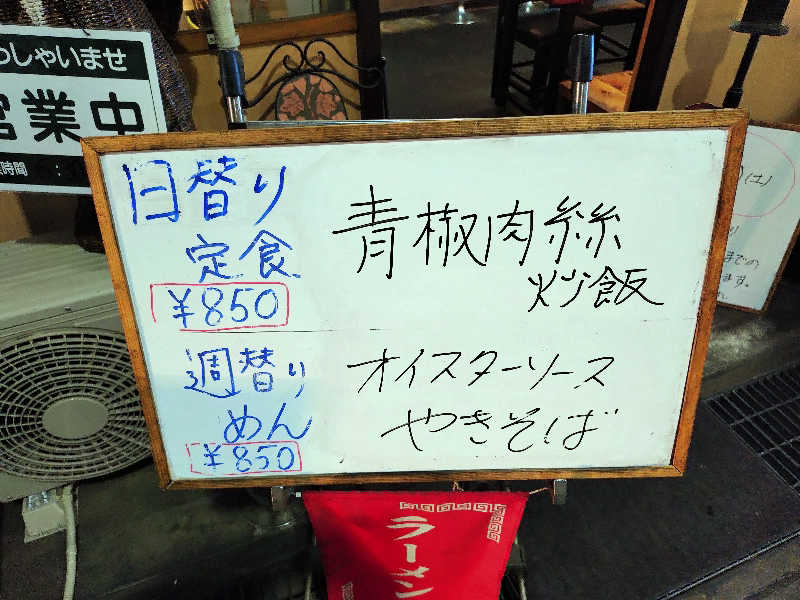 わしゃいませ
営業中
時間
日替り
定食
¥850
青椒肉絲
炒飯
週替り
めん
¥850
オイスターソース
やきそば
ラーメン
(土)
までの
ます。